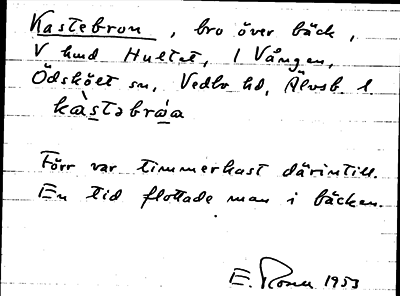 Kastebron, bro över bäck,
V hmd Hultet, I Vången,
Ödskölt sn, Vedbo hd, Älvsb. l.
kàstəbrάa
Förr var timmerkast därintill.
En tid flottade man i bäcken.
E. Rosen 1953